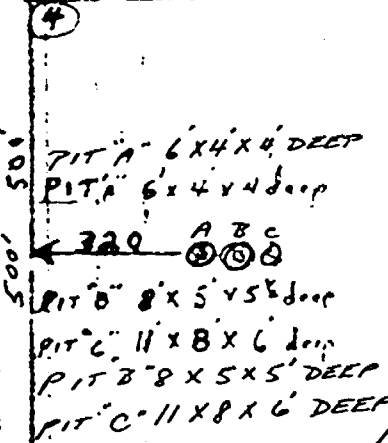 4
PIT "A" 6' X 4' X 4' DEEP
PIT "A" 6' x 4' x 4 deep
50'
A B C
320
500'
PIT "B" 8' X 5' x 5' deep
PIT "C" 11' X 8' X 6' deep
PIT "B" 8 X 5 X 5' DEEP
PIT "C" 11 X 8 X 6' DEEP